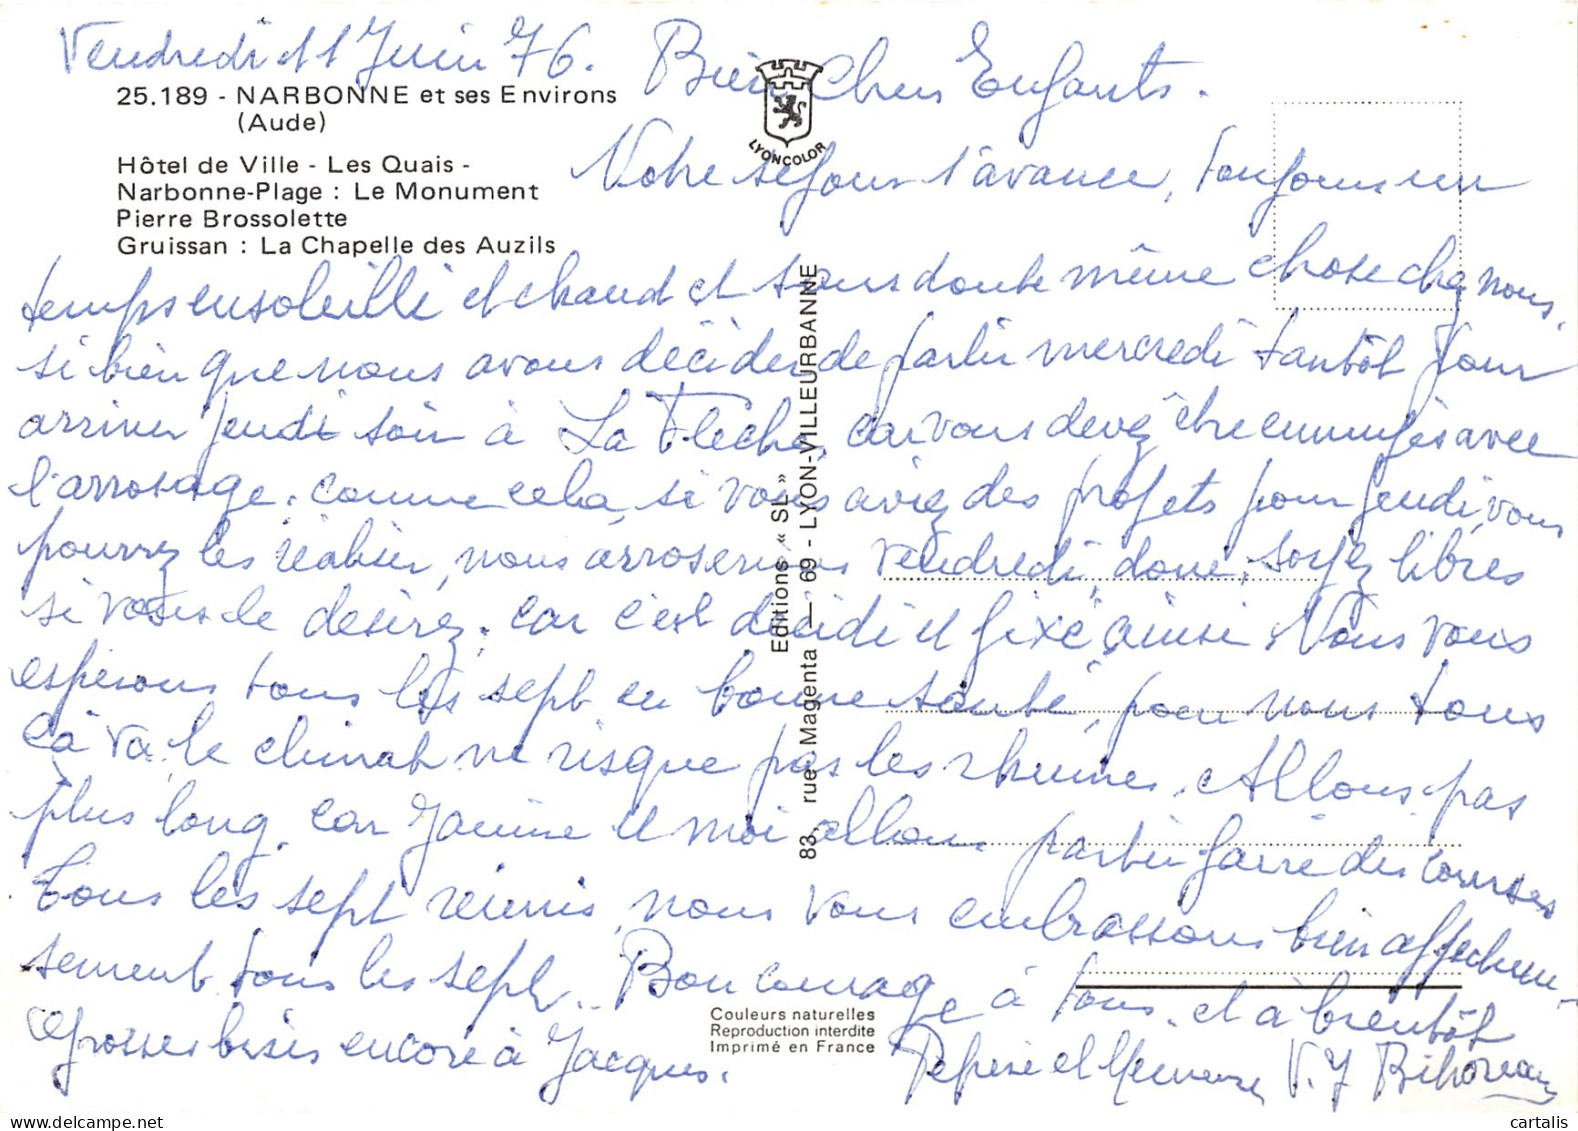 Vendredi 11 Juin 76. Bien Chers Enfants.
25.189 - NARBONNE et ses Environs
(Aude)
LYONCOLOR
Hôtel de Ville - Les Quais -
Narbonne-Plage : Le Monument
Pierre Brossolette
Gruissan : La Chapelle des Auzils
Notre séjour s'avance, toujours un
temps ensoleillé et chaud et sans doute même chose chez nous,
si bien que nous avons décider de partir mercredi tantôt pour
arriver jeudi soir à La Flèche, car vous devez être ennuyés avec
l'arrosage. comme cela, si vous aviez des projets pour jeudi, vous
pourrez les réaliser, nous arroserons vendredi, donc, soyez libres
si vous le désirez, car c'est décidé et fixé ainsi. Nous vous
espérons tous les sept en bonne santé, pour nous tous
çà va, le climat ne risque pas les rhumes. Allons pas
plus long, car Janine et moi allons partir faire des courses
Tous les sept réunis, nous vous embrassons bien affectueu-
sement tous les sept. Bon courage à tous, et à bientôt
Grosses bises encore à Jacques. Pépère et Mémère V. J
Editions « SL »
83, rue Magenta — 69 - LYON-VILLEURBANNE
Couleurs naturelles
Reproduction interdite
Imprimé en France
cartalis